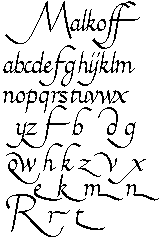 Malkoff
abcdefghijklm
nopqrstuvwx
yz f b d g
a w h k z v x
e k m n
R r t